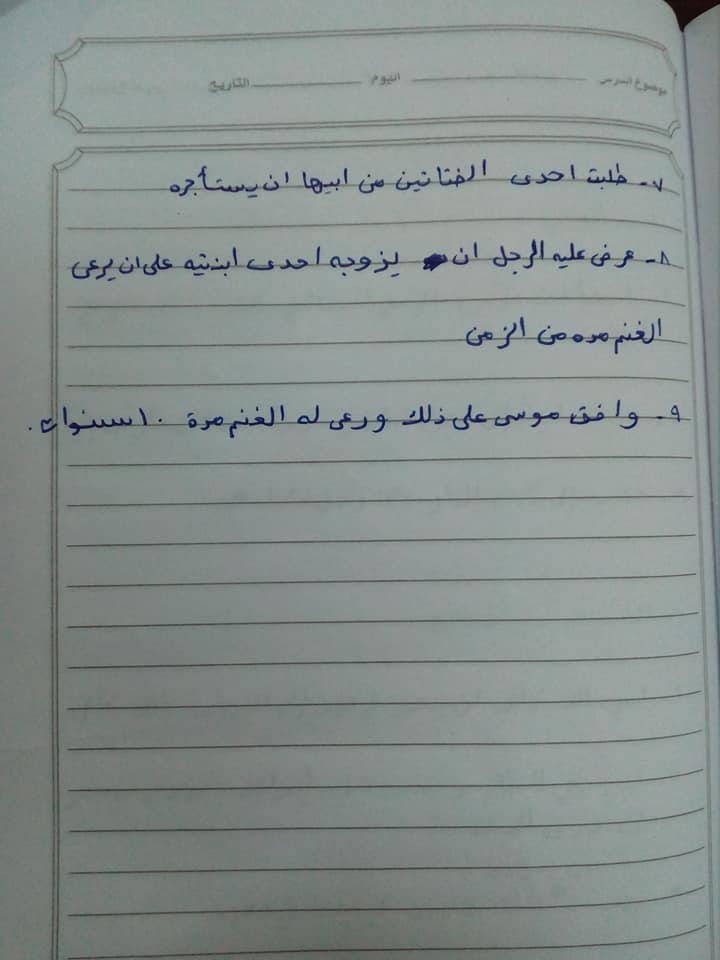 موضوع الدرس اليوم التاريخ
٧- طلبت احدى الفتاتين من ابيها ان يستأجره
٨- عرض عليه الرجل ان يزوجه احدى ابنتيه على ان يرعى
الغنم مده من الزمن
٩- وافق موسى على ذلك ورعى له الغنم مدة ١٠ سنوات.